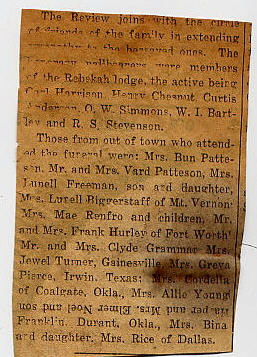 The Review joins with the circle
of friends of the family in extending
sympathy to the bereaved ones. The
honorary pallbearers were members
of the Rebekah lodge, the active being
Carl Harrison, Henry Chesnut, Curtis
Anderson, O. W. Simmons, W. I. Bart-
ley and R. S. Stevenson.
Those from out of town who attend-
ed the funeral were: Mrs. Bun Patte-
son, Mr. and Mrs. Vard Patteson, Mrs.
Lunell Freeman, son and daughter,
Mrs. Lurell Biggerstaff of Mt. Vernon;
Mrs. Mae Renfro and children, Mr.
and Mrs. Frank Hurley of Fort Worth
Mr. and Mrs. Clyde Grammar Mrs.
Jewel Turner, Gainesville, Mrs. Greva
Pierce, Irwin, Texas; Mrs. Cordelia
of Coalgate, Okla., Mrs. Allie Young
der and Mrs. Elmer Noel and son
Franklin, Durant, Okla., Mrs. Bina
and daughter, Mrs. Rice of Dallas.